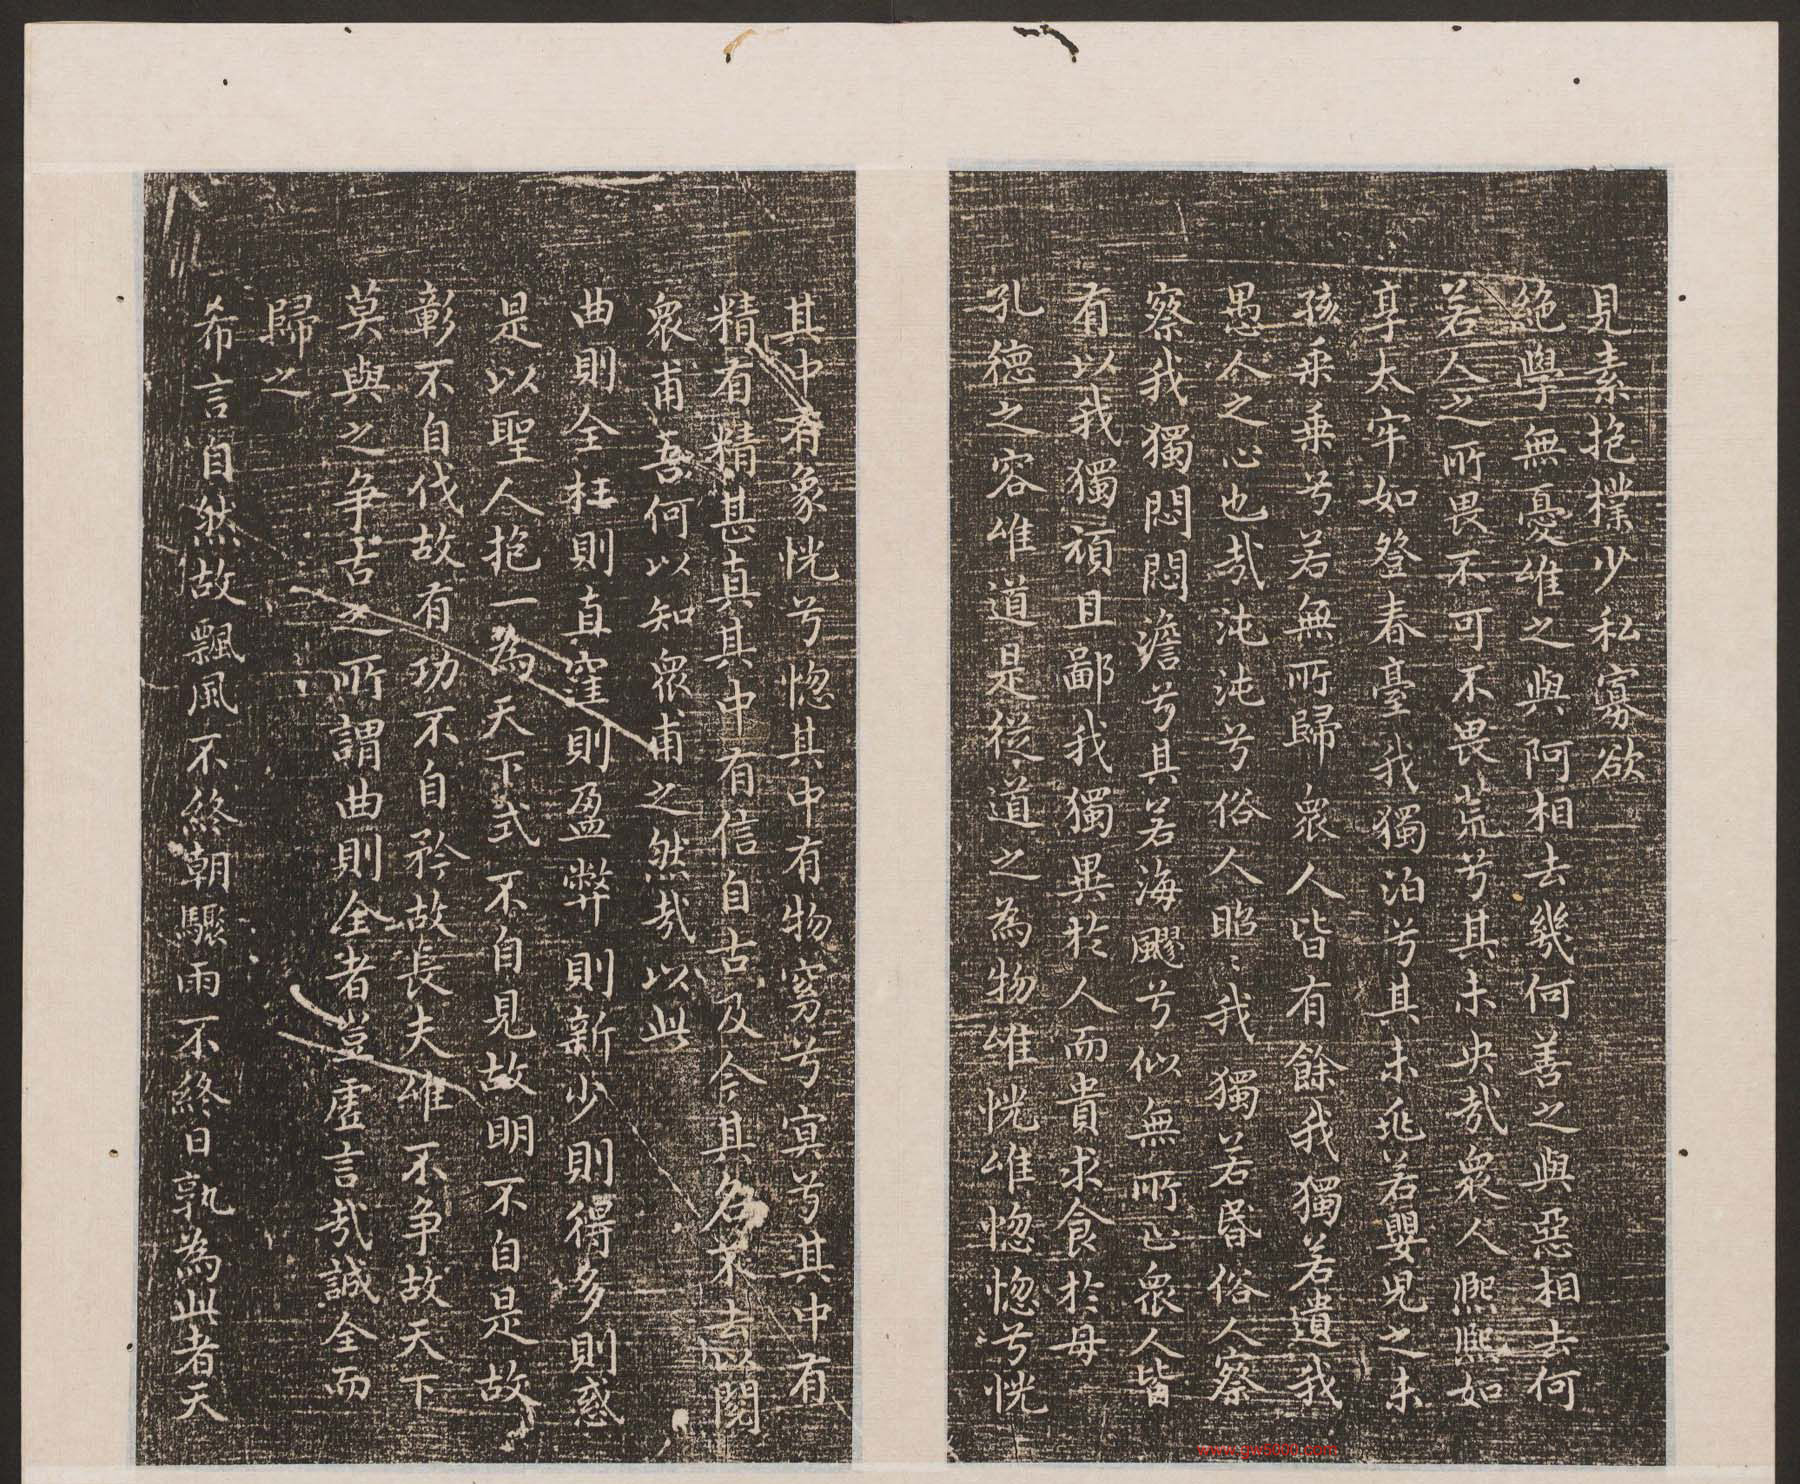 見素抱樸少私寡欲
絕學無憂唯之與阿相去幾何善之與惡相去何
若人之所畏不可不畏荒兮其未央哉衆人熙熙如
享太牢如登春臺我獨泊兮其未兆若嬰兒之未
孩乘乘兮若無所歸衆人皆有餘我獨若遺我
愚人之心也哉沌沌兮俗人昭昭我獨若昏俗人察
察我獨悶悶澹兮其若海飂兮似無所止衆人皆
有以我獨頑且鄙我獨異於人而貴求食於母
孔德之容唯道是從道之為物唯恍唯惚惚兮恍
其中有象恍兮惚其中有物窈兮冥兮其中有
精有精甚真其中有信自古及今其名不去以閱
衆甫吾何以知衆甫之然哉以此
曲則全枉則直窪則盈弊則新少則得多則惑
是以聖人抱一為天下式不自見故明不自是故
彰不自伐故有功不自矜故長夫唯不爭故天下
莫與之爭古之所謂曲則全者豈虛言哉誠全而
歸之
希言自然故飄風不終朝驟雨不終日孰為此者天
www.gw5000.com